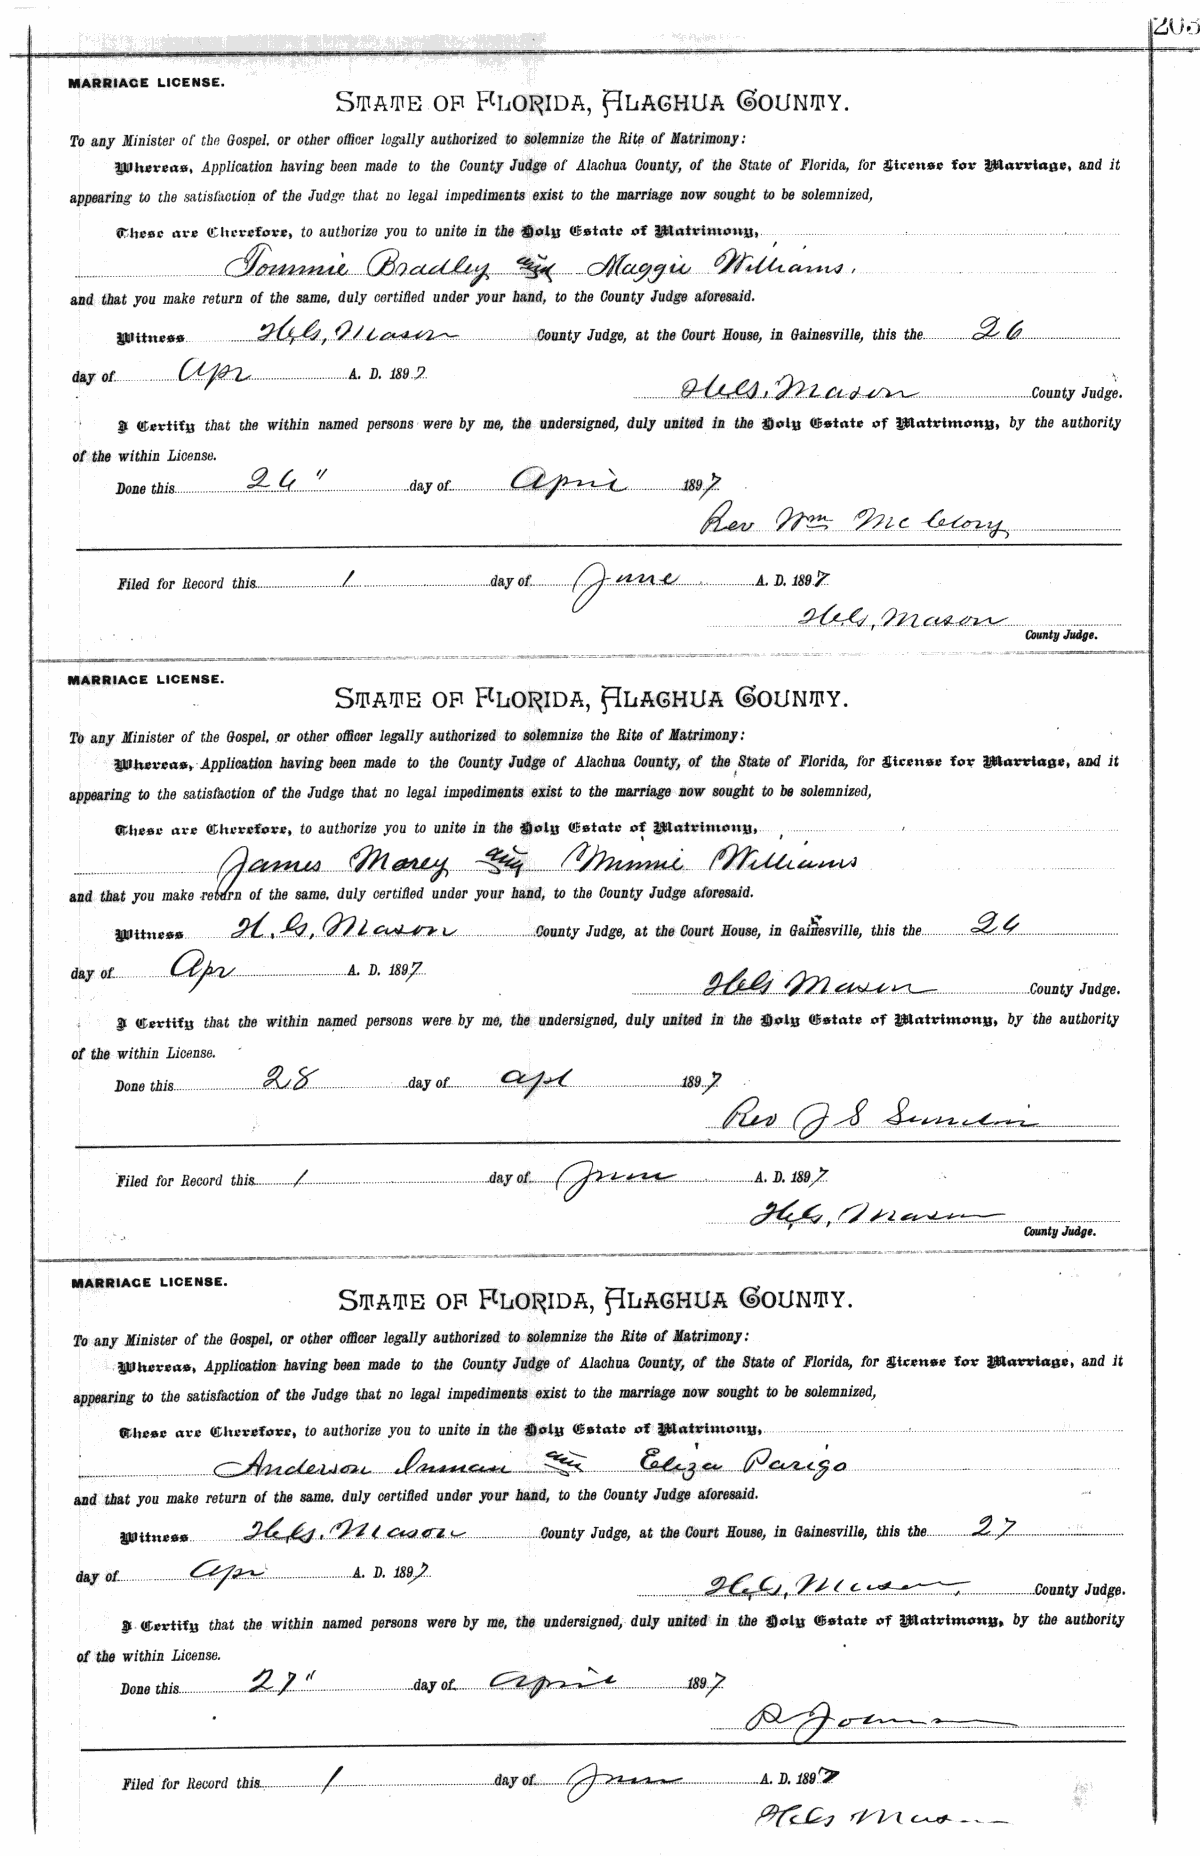 203
MARRIAGE LICENSE.
STATE OF FLORIDA, ALACHUA COUNTY.
To any Minister of the Gospel, or other officer legally authorized to solemnize the Rite of Matrimony:
Whereas, Application having been made to the County Judge of Alachua County, of the State of Florida, for License for Marriage, and it
appearing to the satisfaction of the Judge that no legal impediments exist to the marriage now sought to be solemnized,
These are Therefore, to authorize you to unite in the Holy Estate of Matrimony,
Tommie Bradley and Maggie Williams.
and that you make return of the same, duly certified under your hand, to the County Judge aforesaid.
Witness H.G. Mason County Judge, at the Court House, in Gainesville, this the 26
day of Apr A. D. 1897
H.G. Mason County Judge.
I Certify that the within named persons were by me, the undersigned, duly united in the Holy Estate of Matrimony, by the authority
of the within License.
Done this 26" day of April 1897
Rev Wm Mc
Filed for Record this 1 day of June A. D. 1897
H.G. Mason
County Judge.
MARRIAGE LICENSE.
STATE OF FLORIDA, ALACHUA COUNTY.
To any Minister of the Gospel, or other officer legally authorized to solemnize the Rite of Matrimony:
Whereas, Application having been made to the County Judge of Alachua County, of the State of Florida, for License for Marriage, and it
appearing to the satisfaction of the Judge that no legal impediments exist to the marriage now sought to be solemnized,
These are Therefore, to authorize you to unite in the Holy Estate of Matrimony,
James Morey and Minnie Williams
and that you make return of the same, duly certified under your hand, to the County Judge aforesaid.
Witness H. G. Mason County Judge, at the Court House, in Gainesville, this the 26
day of Apr A. D. 1897
H G Mason County Judge.
I Certify that the within named persons were by me, the undersigned, duly united in the Holy Estate of Matrimony, by the authority
of the within License.
Done this 28 day of Apl 1897
Rev J S
Filed for Record this 1 day of June A. D. 1897
H.G. Mason
County Judge.
MARRIAGE LICENSE.
STATE OF FLORIDA, ALACHUA COUNTY.
To any Minister of the Gospel, or other officer legally authorized to solemnize the Rite of Matrimony:
Whereas, Application having been made to the County Judge of Alachua County, of the State of Florida, for License for Marriage, and it
appearing to the satisfaction of the Judge that no legal impediments exist to the marriage now sought to be solemnized,
These are Therefore, to authorize you to unite in the Holy Estate of Matrimony,
Anderson Inman and Eliza Parigo
and that you make return of the same, duly certified under your hand, to the County Judge aforesaid.
Witness H.G. Mason County Judge, at the Court House, in Gainesville, this the 27
day of Apr A. D. 1897
H.G. Mason, County Judge.
I Certify that the within named persons were by me, the undersigned, duly united in the Holy Estate of Matrimony, by the authority
of the within License.
Done this 27" day of April 1897
R Johnson
Filed for Record this 1 day of June A. D. 1897
H G Mason